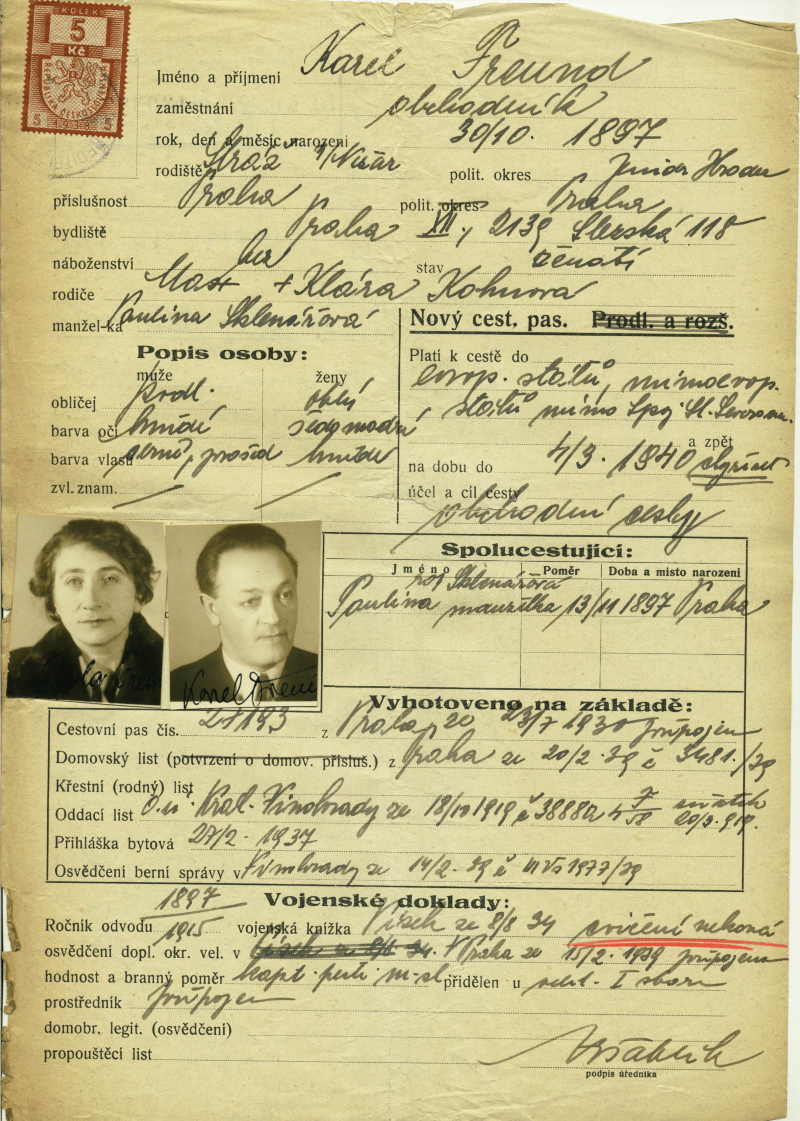 KOLEK
5
Kč
REPUBLIKA ČESKOSLOVENSKÁ
5 1938 5
Jméno a příjmení Karel Freund
zaměstnání obchodník
rok, den a měsíc narození 30/10. 1897
rodiště Stráž n/Než polit. okres Jindř Hradec
příslušnost Praha polit. okres Praha
bydliště Praha XII., 2139 Slezská 118
náboženství bez stav ženatý
rodiče Max + Klára Kohnova
manžel-ka Paulina Sklenářová
Nový cest. pas. Prodl. a rozš.
Popis osoby:
muže ženy
Platí k cestě do evrop. států, mimoevrop.
obličej podl. oblý
států mimo Spoj. St. Severoam.
barva očí hnědé šedomodré
a zpět
barva vlasů černé, prošed hnědé
na dobu do 4/3. 1940
zvl. znam.
účel a cíl cesty
obchodní cesty
Spolucestující:
Jméno Poměr Doba a místo narození
roz Sklenářová
Paulina manželka 13/11 1897 Praha
Karel Freund
Vyhotoveno na základě:
Cestovní pas čís. z Praha, 20 23/7 1930 připojen
Domovský list (potvrzení o domov. přísluš.) z Praha ze 20/2. 39 č 3481./39
Křestní (rodný) list
Oddací list Král. Vinohrady ze 18/10 1919 č
Přihláška bytová 27/2 - 1937
Osvědčení berní správy v Vinohrady ze 14/2. 39 č
Vojenské doklady:
1897
Ročník odvodu 1915 vojenská knížka Písek ze 8/8 34 cvičení nekoná
osvědčení dopl. okr. vel. v Písek ze 8/8 34. Praha ze 15/2. 1939 připojeno
hodnost a branný poměr přidělen u I sboru
prostředník připojen
domobr. legit. (osvědčení)
propouštěcí list
podpis úředníka